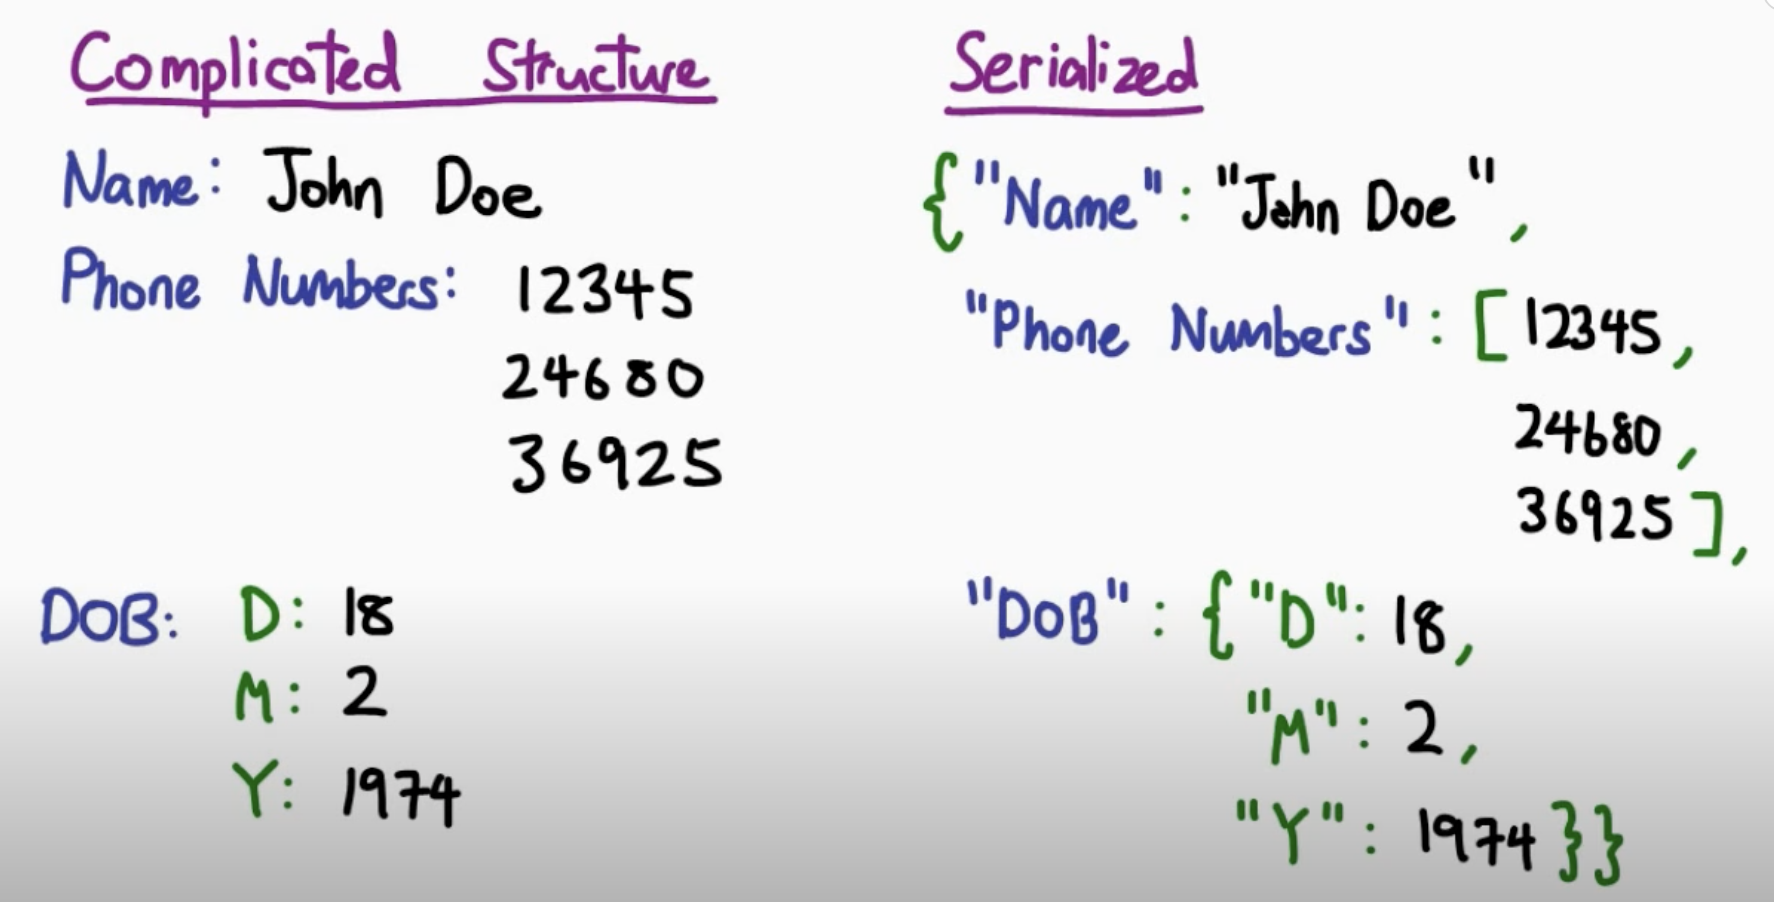 Complicated Structure
Name: John Doe
Phone Numbers: 12345
24680
36925
DOB: D: 18
M: 2
Y: 1974
Serialized
{"Name": "John Doe",
"Phone Numbers": [12345,
24680,
36925],
"DOB": {"D": 18,
"M": 2,
"Y": 1974}}